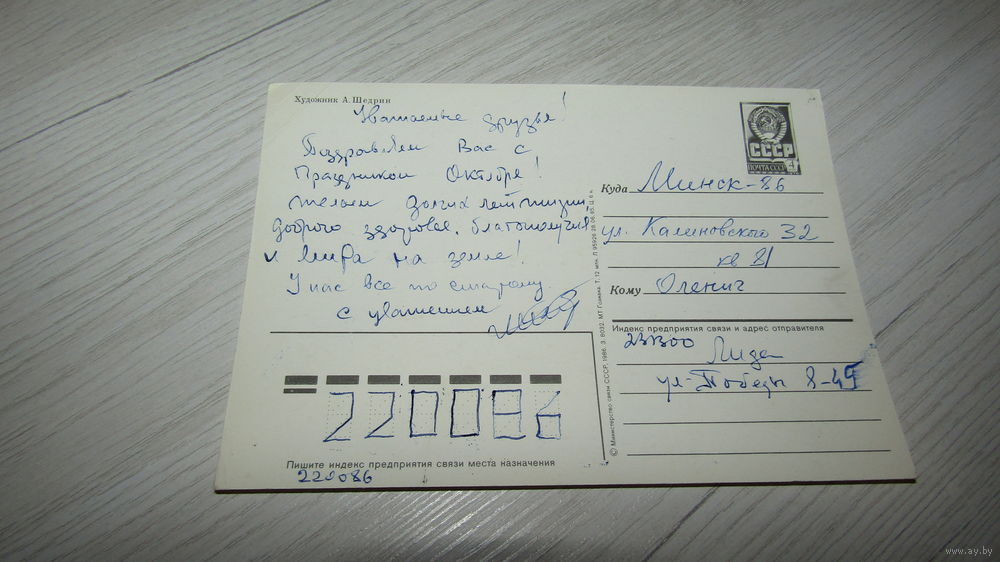 Художник А. Щедрин
Уважаемые друзья!
Поздравляем Вас с
Праздником Октября!
Желаем долгих лет жизни,
доброго здоровья, благополучия
и мира на земле!
У нас все по старому.
с уважением
СССР
ПОЧТА СССР
4
Куда Минск-86
ул. Калиновского 32
кв 81
Кому Оленич
Индекс предприятия связи и адрес отправителя
231300 Лида
ул-Победы 8-45
© Министерство связи СССР, 1986. З. 8032. МТ Гознака. Т. 12 млн. Л 95926 28.06.85. Ц. 4 к.
220086
Пишите индекс предприятия связи места назначения
220086
www.ay.by